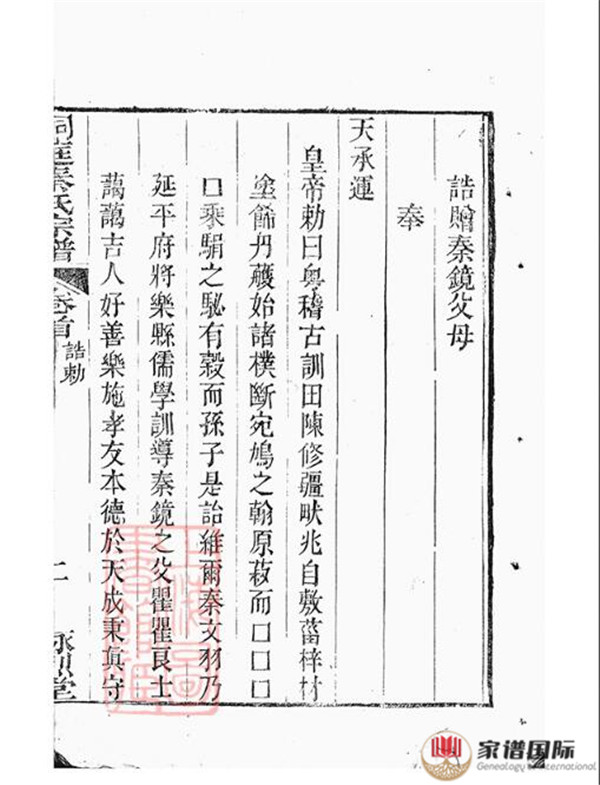 誥贈秦鏡父母
奉
天承運
皇帝勅曰粤稽古訓田陳修疆畎兆自敷菑梓材
塗餙丹雘始諸樸斵宛鳩之翰原菽而口口口
口乘駽之駜有穀而孫子是詒維爾秦文羽乃
延平府將樂縣儒學訓導秦鏡之父瞿瞿良士
藹藹吉人好善樂施孝友本德於天成秉眞守
洞庭秦氏宗譜
卷首
誥勅
二
詠烈堂
家谱国际
Genealogy of International